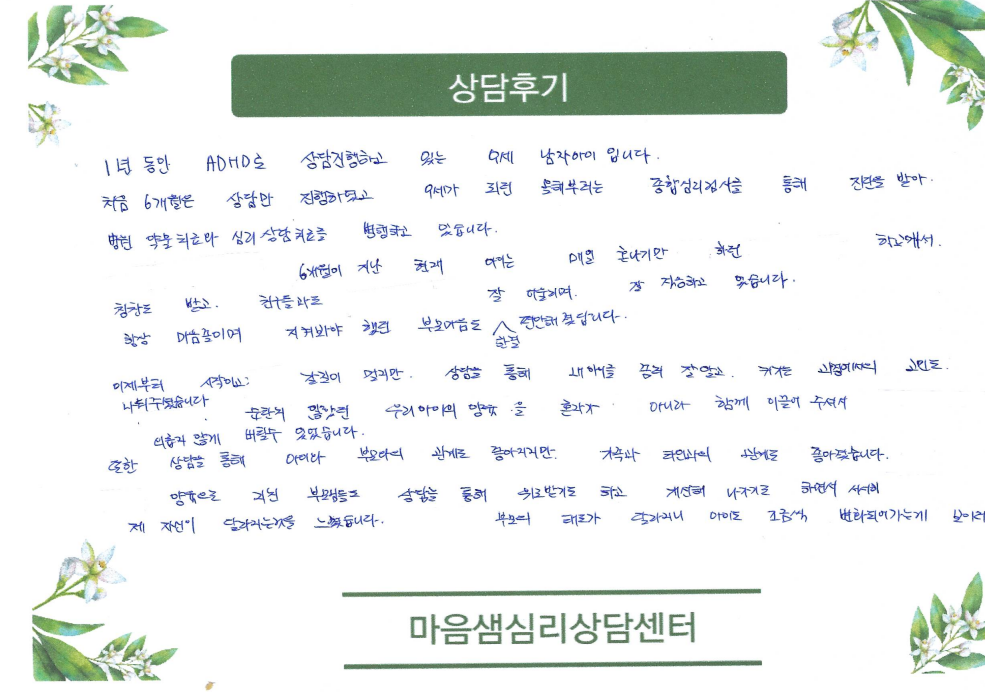 상담후기
1년 동안 ADHD로 상담진행하고 있는 9세 남자아이 입니다.
처음 6개월은 상담만 진행하였고 9세가 되던 올해부터는 종합심리검사를 통해 진단을 받아.
병원 약물치료와 심리상담치료를 병행하고 있습니다.
6개월이 지난 현재 아이는 매일 혼나기만 하던 학교에서.
칭찬도 받고. 친구들과도 잘 어울리며. 잘 적응하고 있습니다.
항상 마음졸이며 지켜봐야 했던 부모마음도 한결 편안해 졌답니다.
이제부터 시작이고: 갈길이 멀지만. 상담을 통해 내아이를 좀더 잘알고. 키우는 과정에서의 고민도.
나눠주셨습니다
순탄치 않았던 우리아이의 양육을 혼자가 아니라 함께 이끌어 주셔서
외롭지 않게 버틸수 있었습니다.
또한 상담을 통해 아이와 부모와의 관계도 좋아지지만. 가족과 타인과의 관계도 좋아졌습니다.
양육으로 지친 부모님들도 상담을 통해 위로받기도 하고 개선해 나가기도 하면서 서서히
제 자신이 달라지는것을 느꼈습니다. 부모의 태도가 달라지니 아이도 조금씩 변화되어가는게 보여서
마음샘심리상담센터